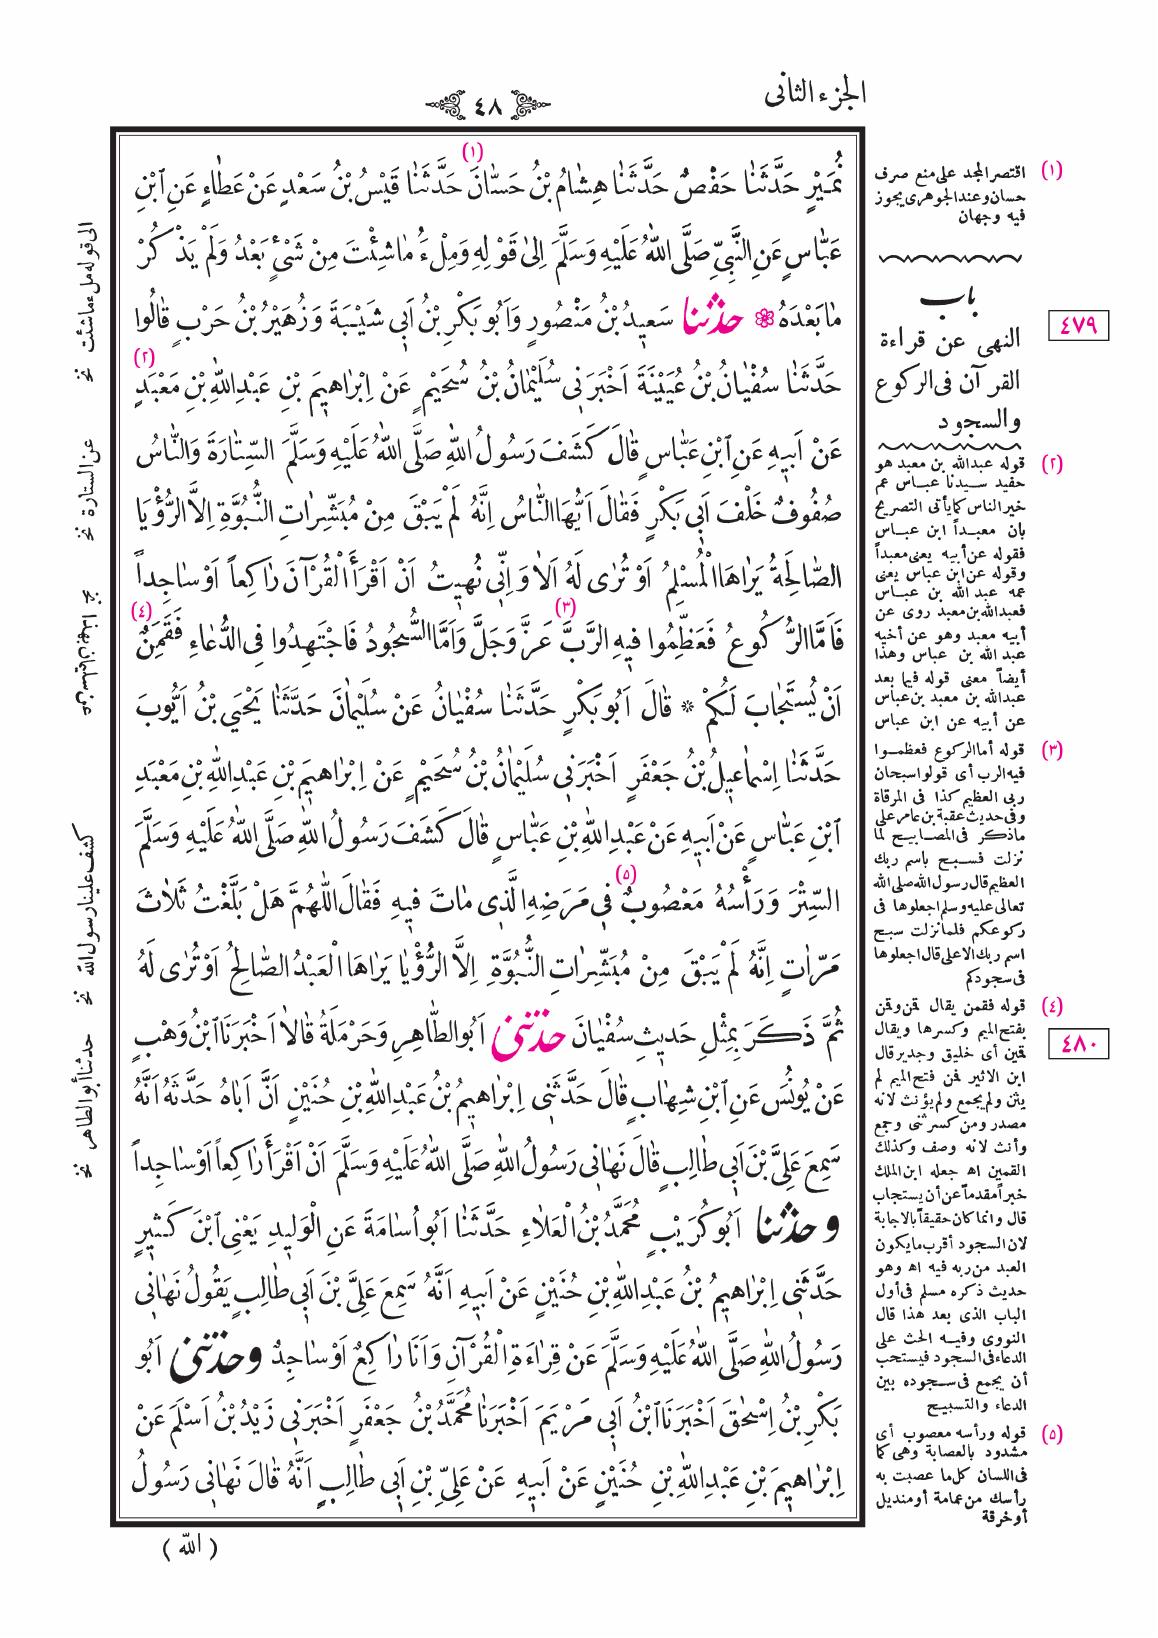 الجزء الثانى
٤٨
نُمَيْرٍ حَدَّثَنَا حَفْصٌ حَدَّثَنَا هِشَامُ بْنُ حَسَّانَ (١) حَدَّثَنَا قَيْسُ بْنُ سَعْدٍ عَنْ عَطَاءٍ عَنِ ابْنِ
عَبَّاسٍ عَنِ النَّبِيِّ صَلَّى اللهُ عَلَيْهِ وَسَلَّمَ اِلىٰ قَوْلِهِ وَمِلْءُ مَا شِئْتَ مِنْ شَىْءٍ بَعْدُ وَلَمْ يَذْكُرْ
مَا بَعْدَهُ ❀ حدثنا سَعِيدُ بْنُ مَنْصُورٍ وَاَبُو بَكْرِ بْنُ اَبِي شَيْبَةَ وَزُهَيْرُ بْنُ حَرْبٍ قَالُوا
حَدَّثَنَا سُفْيَانُ بْنُ عُيَيْنَةَ اَخْبَرَنِي سُلَيْمَانُ بْنُ سُحَيْمٍ عَنْ اِبْرَاهِيمَ بْنِ عَبْدِ اللهِ بْنِ مَعْبَدٍ (٢)
عَنْ اَبِيهِ عَنِ ابْنِ عَبَّاسٍ قَالَ كَشَفَ رَسُولُ اللهِ صَلَّى اللهُ عَلَيْهِ وَسَلَّمَ السِّتَارَةَ وَالنَّاسُ
صُفُوفٌ خَلْفَ اَبِي بَكْرٍ فَقَالَ اَيُّهَا النَّاسُ اِنَّهُ لَمْ يَبْقَ مِنْ مُبَشِّرَاتِ النُّبُوَّةِ اِلَّا الرُّؤْيَا
الصَّالِحَةُ يَرَاهَا الْمُسْلِمُ اَوْ تُرٰى لَهُ اَلَا وَاِنِّي نُهِيتُ اَنْ اَقْرَأَ الْقُرْآنَ رَاكِعاً اَوْ سَاجِداً
فَاَمَّا الرُّكُوعُ فَعَظِّمُوا فِيهِ الرَّبَّ (٣) عَزَّ وَجَلَّ وَاَمَّا السُّجُودُ فَاجْتَهِدُوا فِي الدُّعَاءِ فَقَمِنٌ (٤)
اَنْ يُسْتَجَابَ لَكُمْ ❊ قَالَ اَبُو بَكْرٍ حَدَّثَنَا سُفْيَانُ عَنْ سُلَيْمَانَ حَدَّثَنَا يَحْيَي بْنُ اَيُّوبَ
حَدَّثَنَا اِسْمَاعِيلُ بْنُ جَعْفَرٍ اَخْبَرَنِي سُلَيْمَانُ بْنُ سُحَيْمٍ عَنْ اِبْرَاهِيمَ بْنِ عَبْدِ اللهِ بْنِ مَعْبَدِ
ابْنِ عَبَّاسٍ عَنْ اَبِيهِ عَنْ عَبْدِ اللهِ بْنِ عَبَّاسٍ قَالَ كَشَفَ رَسُولُ اللهِ صَلَّى اللهُ عَلَيْهِ وَسَلَّمَ
السِّتْرَ وَرَأْسُهُ مَعْصُوبٌ (٥) فِي مَرَضِهِ الَّذِي مَاتَ فِيهِ فَقَالَ اللّٰهُمَّ هَلْ بَلَّغْتُ ثَلَاثَ
مَرَّاتٍ اِنَّهُ لَمْ يَبْقَ مِنْ مُبَشِّرَاتِ النُّبُوَّةِ اِلَّا الرُّؤْيَا يَرَاهَا الْعَبْدُ الصَّالِحُ اَوْ تُرٰى لَهُ
ثُمَّ ذَكَرَ بِمِثْلِ حَدِيثِ سُفْيَانَ حدثني اَبُو الطَّاهِرِ وَحَرْمَلَةُ قَالَا اَخْبَرَنَا ابْنُ وَهْبٍ
عَنْ يُونُسَ عَنِ ابْنِ شِهَابٍ قَالَ حَدَّثَنِي اِبْرَاهِيمُ بْنُ عَبْدِ اللهِ بْنِ حُنَيْنٍ اَنَّ اَبَاهُ حَدَّثَهُ اَنَّهُ
سَمِعَ عَلِيَّ بْنَ اَبِي طَالِبٍ قَالَ نَهَانِي رَسُولُ اللهِ صَلَّى اللهُ عَلَيْهِ وَسَلَّمَ اَنْ اَقْرَأَ رَاكِعاً اَوْ سَاجِداً
وحدثنا اَبُو كُرَيْبٍ مُحَمَّدُ بْنُ الْعَلَاءِ حَدَّثَنَا اَبُو اُسَامَةَ عَنِ الْوَلِيدِ يَعْنِي ابْنَ كَثِيرٍ
حَدَّثَنِي اِبْرَاهِيمُ بْنُ عَبْدِ اللهِ بْنِ حُنَيْنٍ عَنْ اَبِيهِ اَنَّهُ سَمِعَ عَلِيَّ بْنَ اَبِي طَالِبٍ يَقُولُ نَهَانِي
رَسُولُ اللهِ صَلَّى اللهُ عَلَيْهِ وَسَلَّمَ عَنْ قِرَاءَةِ الْقُرْآنِ وَاَنَا رَاكِعٌ اَوْ سَاجِدٌ وحدثني اَبُو
بَكْرِ بْنُ اِسْحٰقَ اَخْبَرَنَا ابْنُ اَبِي مَرْيَمَ اَخْبَرَنَا مُحَمَّدُ بْنُ جَعْفَرٍ اَخْبَرَنِي زَيْدُ بْنُ اَسْلَمَ عَنْ
اِبْرَاهِيمَ بْنِ عَبْدِ اللهِ بْنِ حُنَيْنٍ عَنْ اَبِيهِ عَنْ عَلِيِّ بْنِ اَبِي طَالِبٍ اَنَّهُ قَالَ نَهَانِي رَسُولُ
( اللّٰه )
(١) اقتصر المجد على منع صرف
حسان وعند الجوهرى يجوز
فيه وجهان
باب
٤٧٩
النهى عن قراءة
القرآن فى الركوع
والسجود
(٢) قوله عبدالله بن معبد هو
حفيد سيدنا عباس عم
خير الناس كما يأتى التصريح
بان معبداً ابن عباس
فقوله عن أبيه يعنى معبداً
وقوله عن ابن عباس يعنى
عمه عبد الله بن عباس
فعبدالله بن معبد روى عن
أبيه معبد وهو عن أخيه
عبد الله بن عباس وهذا
أيضاً معنى قوله فيما بعد
عبدالله بن معبد بن عباس
عن أبيه عن ابن عباس
(٣) قوله أما الركوع فعظموا
فيه الرب أى قولوا سبحان
ربى العظيم كذا فى المرقاة
وفى حديث عقبة بن عامر على
ما ذكر فى المصابيح لما
نزلت فسبح باسم ربك
العظيم قال رسول الله صلى الله
تعالى عليه وسلم اجعلوها فى
ركوعكم فلما نزلت سبح
اسم ربك الاعلى قال اجعلوها
فى سجودكم
(٤) قوله فقمن يقال قمن وقمن
بفتح الميم وكسرها ويقال
قمين أى خليق وجدير قال
ابن الاثير فمن فتح الميم لم
يثن ولم يجمع ولم يؤنث لانه
مصدر ومن كسر ثنى وجمع
وأنث لانه وصف وكذلك
القمين اه جعله ابن الملك
خبراً مقدماً عن أن يستجاب
قال وانما كان حقيقاً بالاجابة
لان السجود أقرب ما يكون
العبد من ربه فيه اه وهو
حديث ذكره مسلم فى أول
الباب الذى بعد هذا قال
النووى وفيه الحث على
الدعاء فى السجود فيستحب
أن يجمع فى سجوده بين
الدعاء والتسبيح
٤٨٠
(٥) قوله ورأسه معصوب أى
مشدود بالعصابة وهى كما
فى اللسان كل ما عصبت به
رأسك من عمامة أو منديل
أو خرقة
الى قوله ملء ما شئت نخ
عن الستارة نخ
كشف علينا رسول الله نخ
حدثنا أبو الطاهر نخ